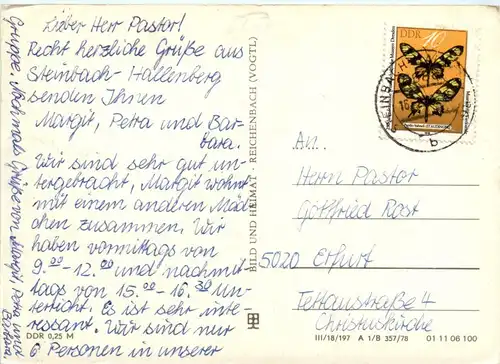 Lieber Herr Pastor!
Recht herzliche Grüße aus
Steinbach-Hallenberg
senden Ihnen
Margit, Petra und Bar-
bara.
Wir sind sehr gut un-
tergebracht, Margit wohnt
mit einem anderen Mäd-
chen zusammen. Wir
haben vormittags von
9.00 - 12.00 und nachmit
tags von 15.00 - 16.30 Un-
terricht. Es ist sehr inte-
ressant. Wir sind nur
6 Personen in unserer
Gruppe. Nochmals Grüße von Margit, Petra und
Barbara
DDR 0,25 M
BILD UND HEIMAT · REICHENBACH (VOGTL)
DDR
10
An.
Herrn Pastor
Gottfried Rost
5020 Erfurt
Tettaustraße 4
Christuskirche
III/18/197 A 1/B 357/78 01 11 06 100